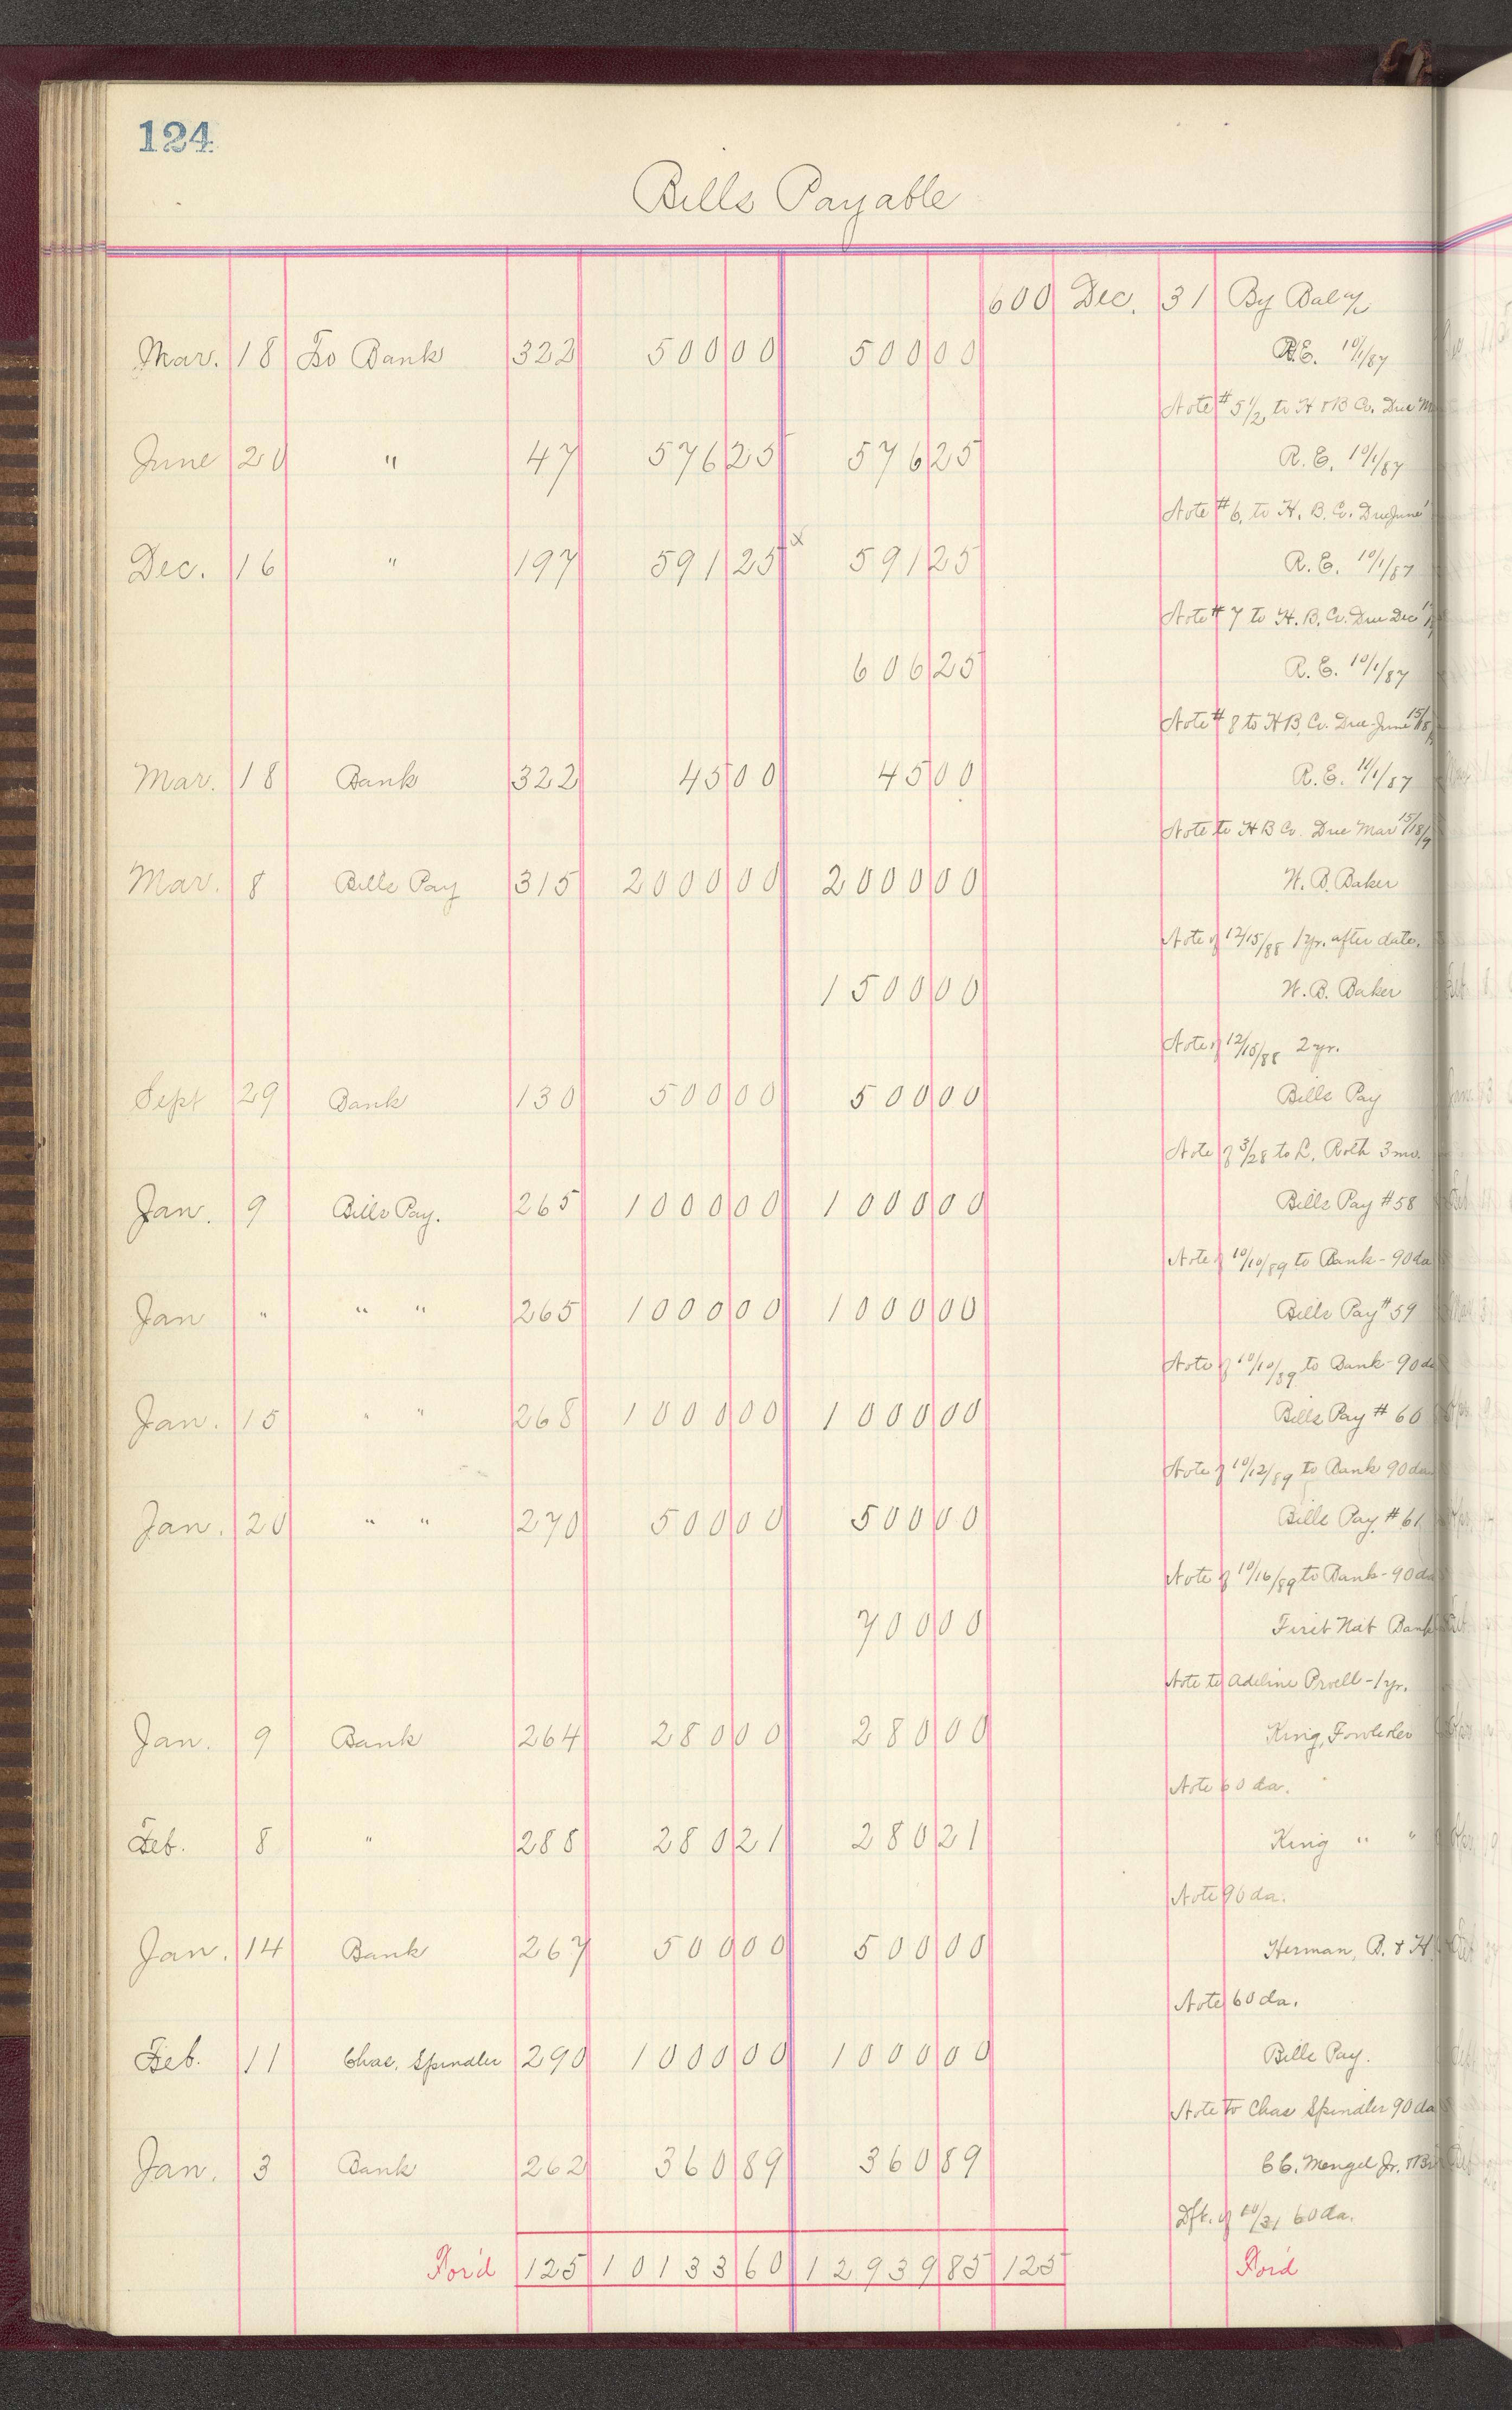 124
Bills Payable
600 Dec. 31 By Bal c/
Mar. 18 To Bank 322 500 00 500 00 R.E. 10/1/87
Note #5 1/2, to H & B Co. Due
June 20 " 47 576 25 576 25 R.E. 10/1/87
Note #6, to H. B. Co. Due June
Dec. 16 " 197 591 25 x 591 25 R.E. 10/1/87
Note #7 to H. B. Co. Due Dec
606 25 R.E. 10/1/87
Note #8 to H B, Co. Due June 15/18
Mar. 18 Bank 322 45 00 45 00 R.E. 11/1/87
Note to H B Co Due Mar 15/18/9
Mar. 8 Bills Pay 315 2000 00 2000 00 W. B. Baker
Note of 12/15/88 1 yr. after date.
1500 00 W. B. Baker
Note of 12/15/88 2 yr.
Sept 29 Bank 130 500 00 500 00 Bills Pay
Note of 3/28 to L. Roth 3 mo.
Jan. 9 Bills Pay. 265 1000 00 1000 00 Bills Pay #58
Note of 10/10/89 to Bank - 90 da
Jan " " " 265 1000 00 1000 00 Bills Pay #59
Note of 10/10/89 to Bank - 90 da
Jan. 15 " " 268 1000 00 1000 00 Bills Pay #60
Note of 10/12/89 to Bank 90 da
Jan. 20 " " 270 500 00 500 00 Bills Pay. #61
Note of 10/16/89 to Bank - 90 da
700 00 First Nat Bank
Note to Adeline Proell - 1 yr.
Jan. 9 Bank 264 280 00 280 00 King, Fowler
Note 60 da.
Feb. 8 " 288 280 21 280 21 King " "
Note 90 da.
Jan. 14 Bank 267 500 00 500 00 Herman, B. & H
Note 60 da.
Feb. 11 Chas. Spindler 290 1000 00 1000 00 Bills Pay.
Note to Chas Spindler 90 da
Jan. 3 Bank 262 360 89 360 89 C C. Mengel Jr. & Br
Dft. of 10/31 60 da.
For'd 125 10133 60 12939 85 125 For'd